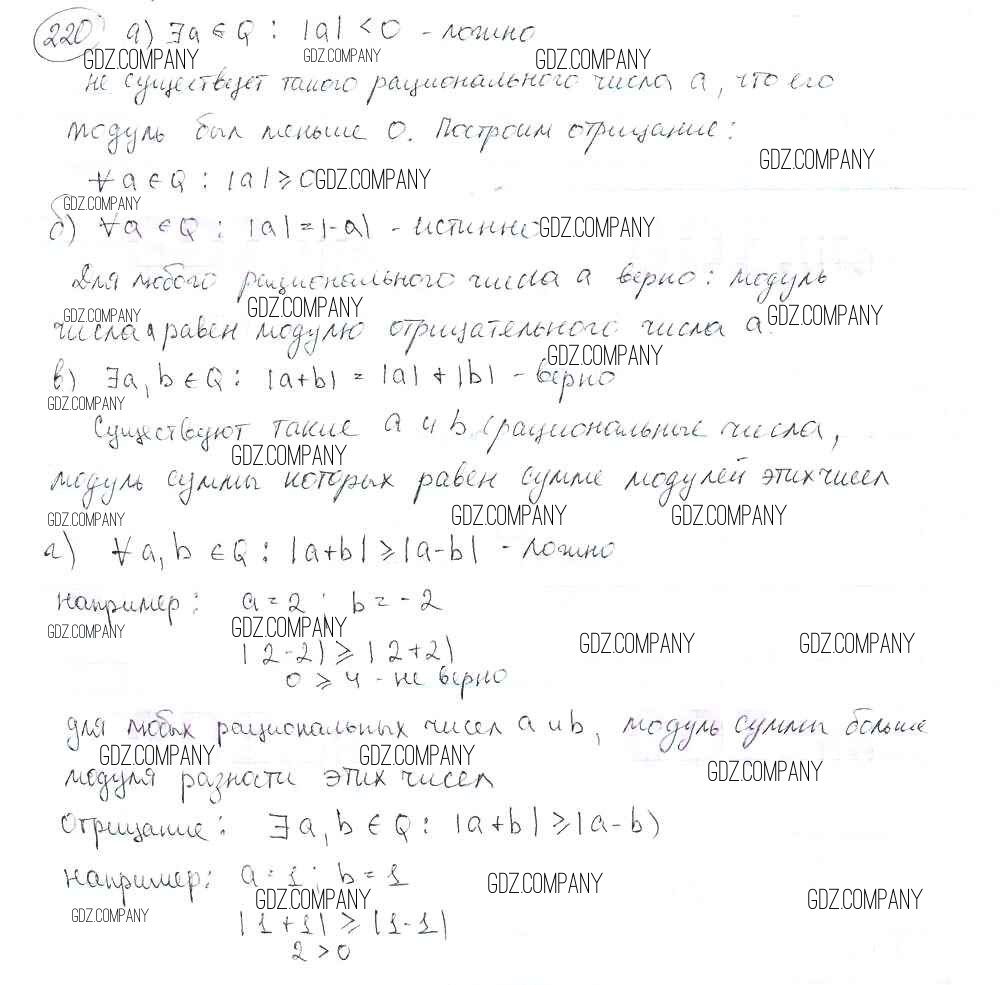 220 а) ∃a ∈ Q : |a| < 0 - ложно
GDZ.COMPANY GDZ.COMPANY GDZ.COMPANY
не существует такого рационального числа a, что его
модуль был меньше 0. Построим отрицание:
GDZ.COMPANY
∀a ∈ Q : |a| ⩾ 0 GDZ.COMPANY
GDZ.COMPANY
б) ∀a ∈ Q : |a| = |-a| - истинно GDZ.COMPANY
Для любого рационального числа a верно: модуль
GDZ.COMPANY GDZ.COMPANY GDZ.COMPANY
числа a равен модулю отрицательного числа a.
GDZ.COMPANY
в) ∃a, b ∈ Q : |a+b| = |a| + |b| - верно
GDZ.COMPANY
Существуют такие a и b рациональные числа,
GDZ.COMPANY
модуль суммы которых равен сумме модулей этих чисел
GDZ.COMPANY GDZ.COMPANY GDZ.COMPANY
г) ∀a, b ∈ Q : |a+b| ⩾ |a-b| - ложно
например: a = 2 ; b = -2
GDZ.COMPANY GDZ.COMPANY GDZ.COMPANY GDZ.COMPANY
|2-2| ⩾ |2+2|
0 ⩾ 4 - не верно
для любых рациональных чисел a и b, модуль суммы больше
GDZ.COMPANY GDZ.COMPANY GDZ.COMPANY
модуля разности этих чисел
Отрицание: ∃a, b ∈ Q : |a+b| ⩾ |a-b|
например: a = 1 ; b = 1
GDZ.COMPANY GDZ.COMPANY GDZ.COMPANY
GDZ.COMPANY
|1+1| ⩾ |1-1|
2 > 0